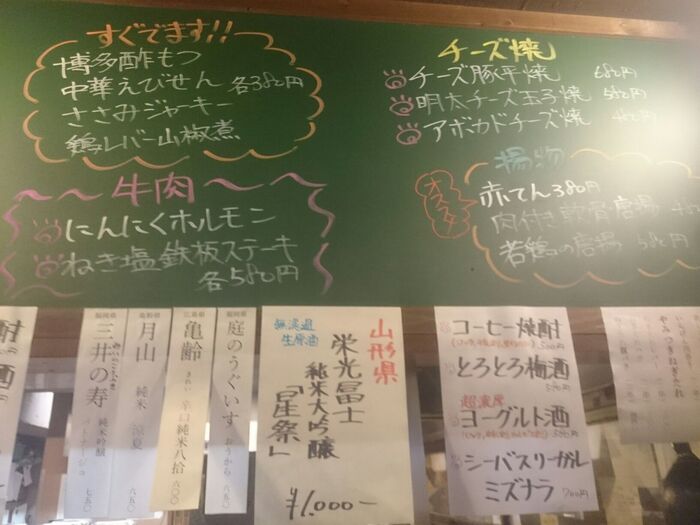 すぐでます!!
博多酢もつ
中華えびせん 各380円
ささみジャーキー
鶏レバー山椒煮
チーズ焼
チーズ豚平焼 680円
明太チーズ玉子焼 580円
アボカドチーズ焼
揚物
オススメ
赤てん 380円
肉付き軟骨唐揚
若鶏の唐揚 580円
牛肉
にんにくホルモン
ねぎ塩鉄板ステーキ
各580円
酎
酒
福岡県
三井の寿
純米吟醸
七五〇
島根県
月山
純米 涼夏
六五〇
広島県
亀齢
きれい
辛口純米八拾
六〇〇
福岡県
庭のうぐいす
おうから
六五〇
無濾過
生原酒
山形県
栄光冨士
純米大吟醸
「星祭」
¥1,000-
コーヒー焼酎
500円
とろとろ梅酒
590円
超濃厚
ヨーグルト酒
590円
シーバスリーガル
ミズナラ 700円